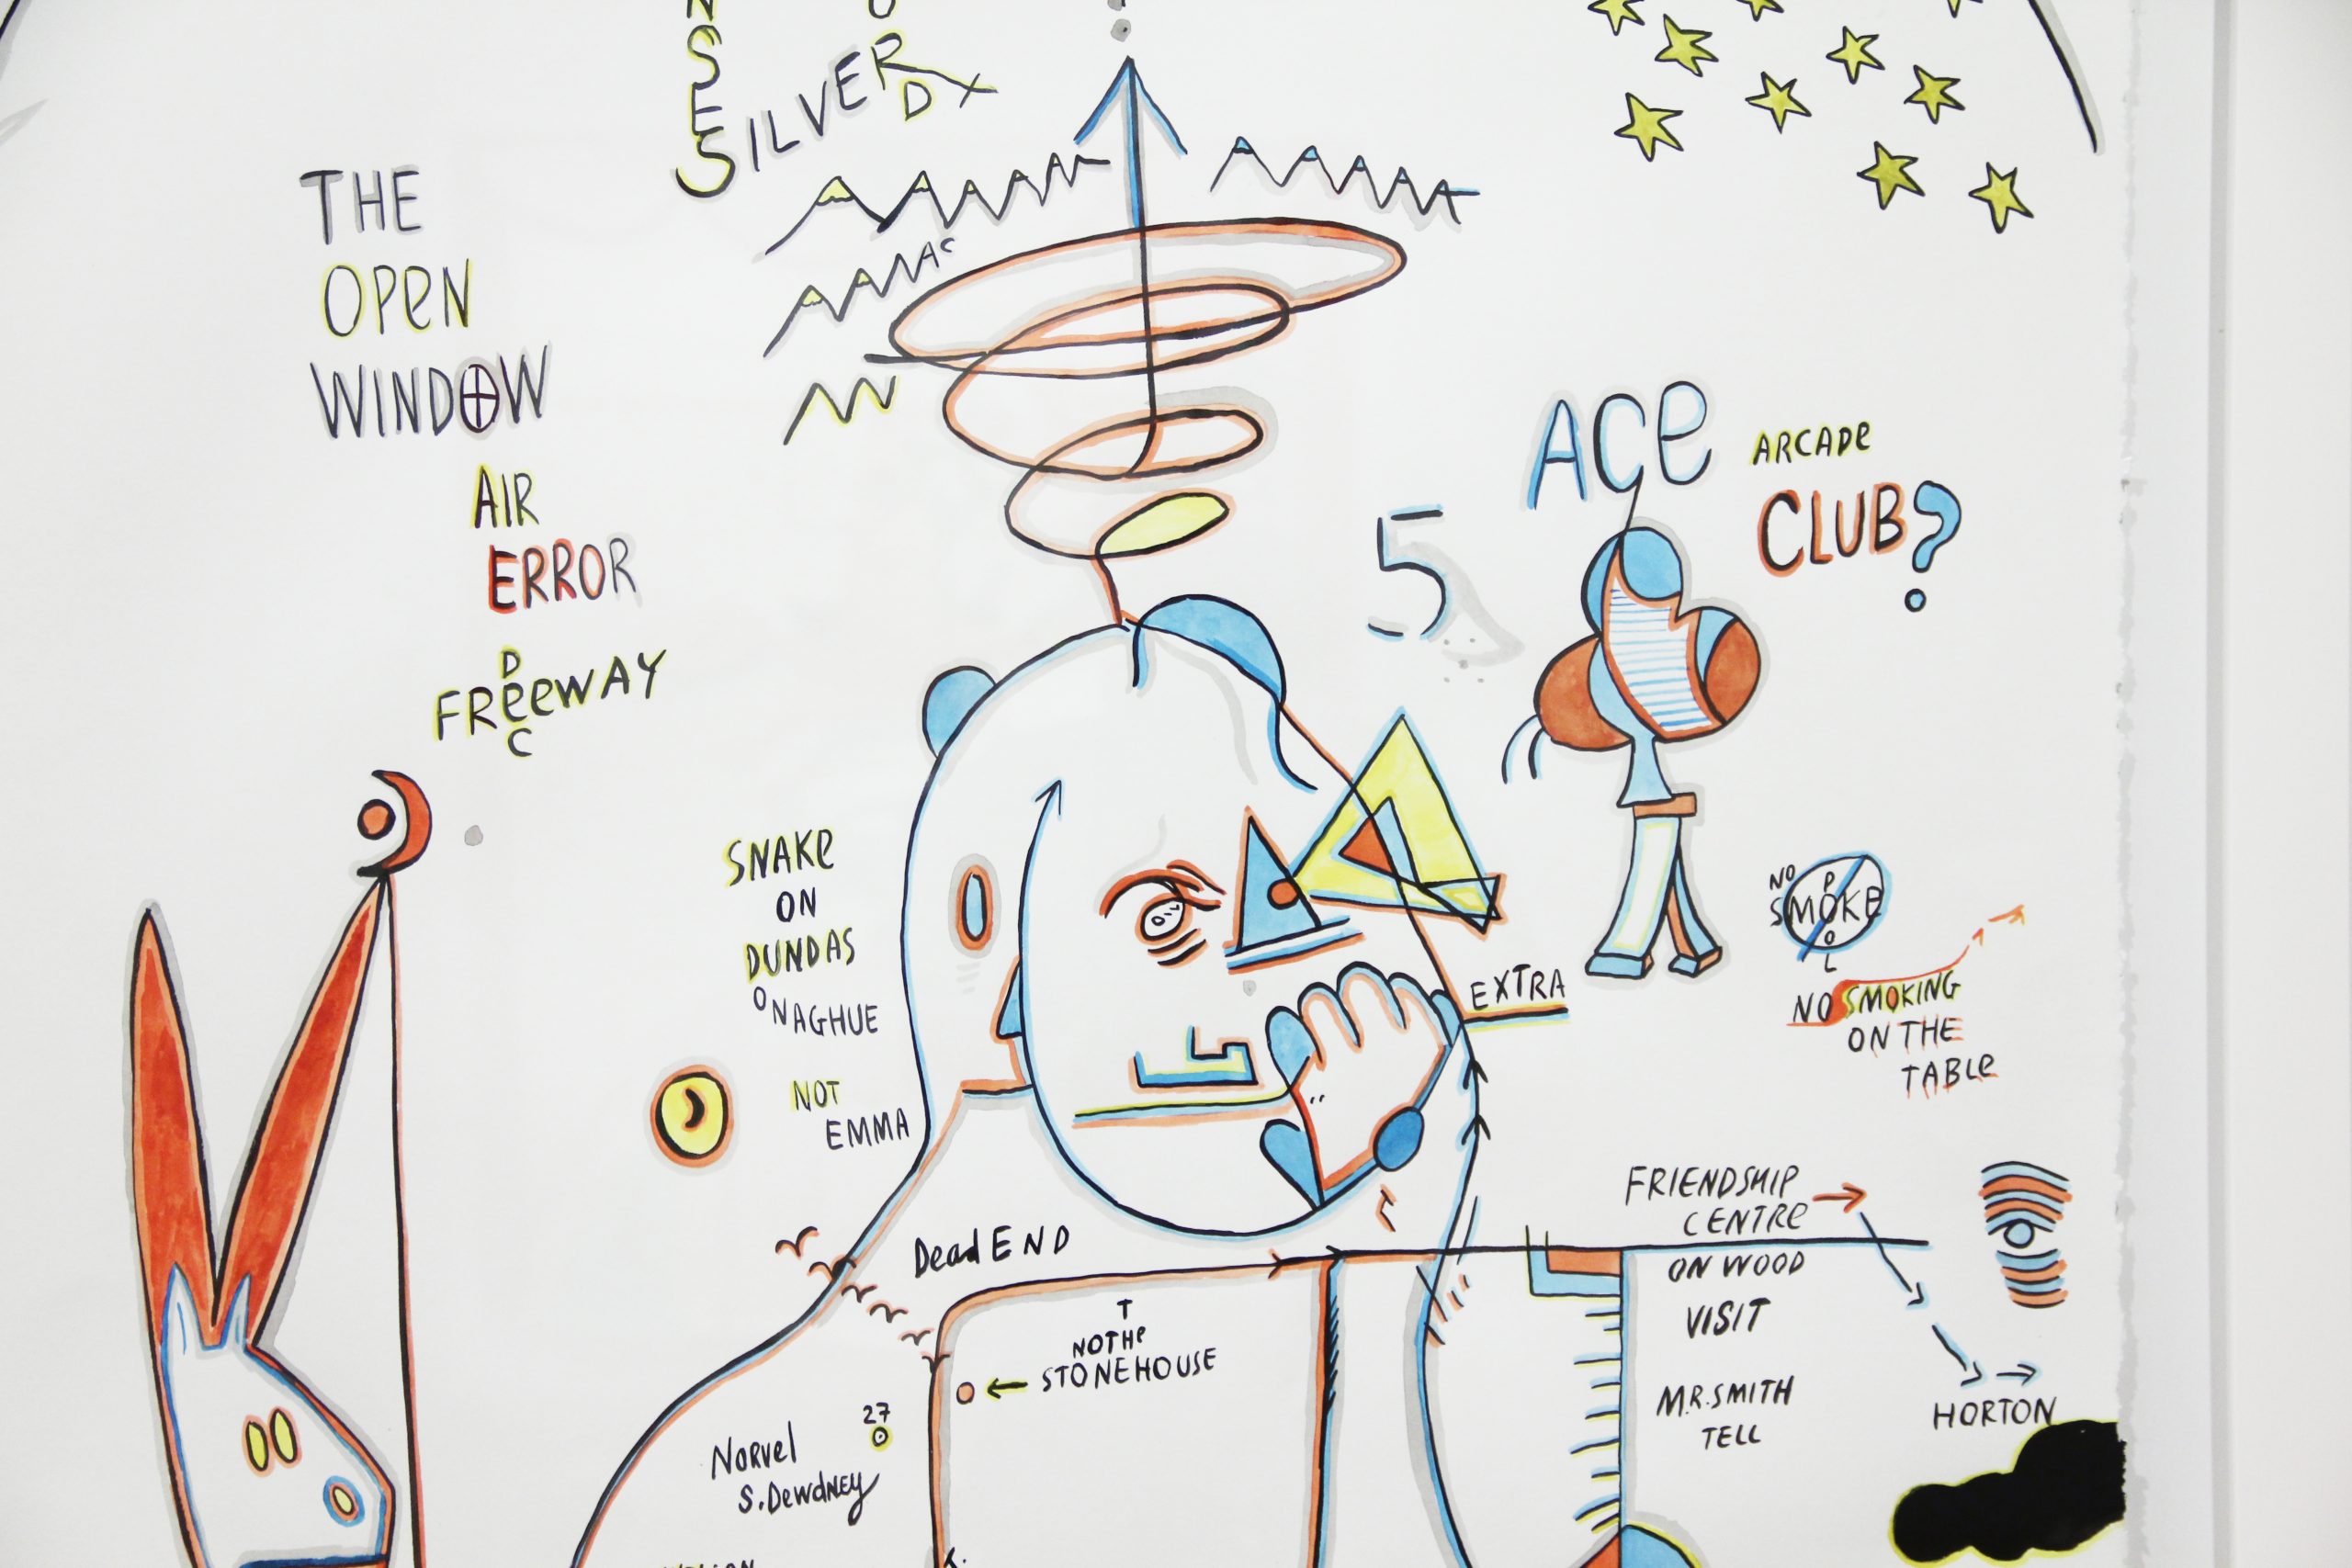 SILVER
THE
OPEN
WINDOW
AIR
ERROR
FREEWAY
ACE
ARCADE
CLUB?
5
SNAKE
ON
DUNDAS
ONAGHUE
NOT
EMMA
OIL
EXTRA
NO
SMOKE
POOL
NO SMOKING
ON THE
TABLE
Dead END
FRIENDSHIP
CENTRE
ON WOOD
VISIT
MR. SMITH
TELL
HORTON
T
NOTHe
STONEHOUSE
27
NORVel
S. DewdNEY